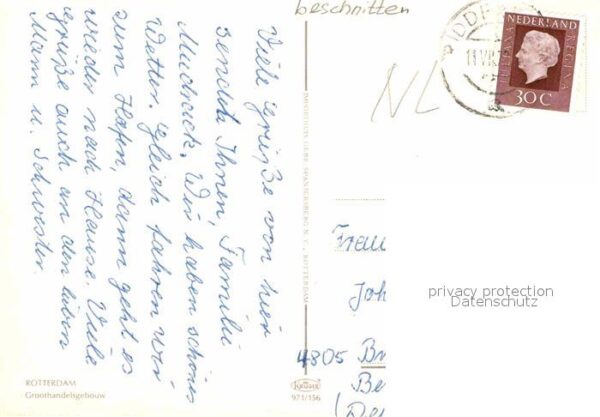 beschnitten
Viele Grüße von hier
sendet Ihnen, Familie
Mudrack. Wir haben schönes
Wetter. Gleich fahren wir
zum Hafen, dann geht es
wieder nach Hause. Viele
Grüße auch an den lieben
Mann u. Schwester.
ROTTERDAM
Groothandelsgebouw
ROTTERDAM
KRÜGER
971/156
NL
11 VII
NEDERLAND
JULIANA REGINA
30 C
Frau
Joh
4805 Br
Be
(De
privacy protection
Datenschutz